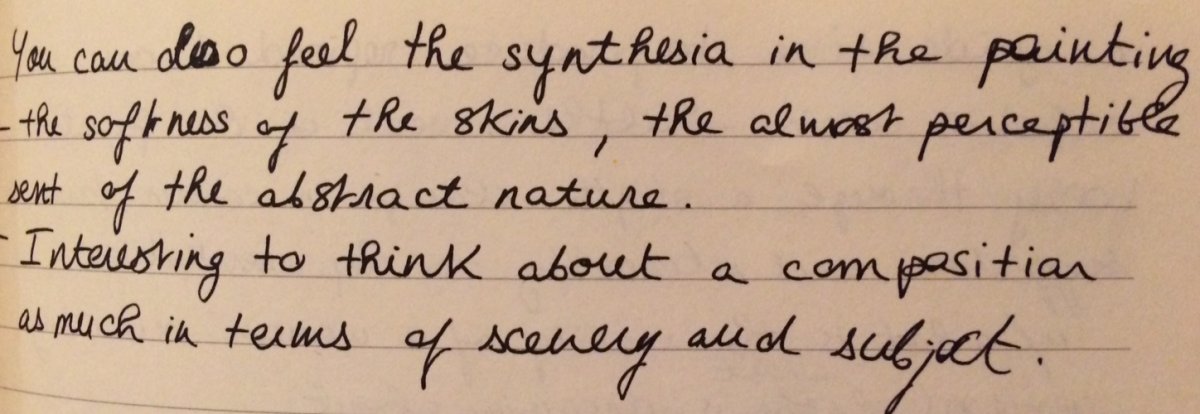 You can also feel the synthesia in the painting
- the softness of the skins, the almost perceptible
sent of the abstract nature.
- Interesting to think about a composition
as much in terms of scenery and subject.